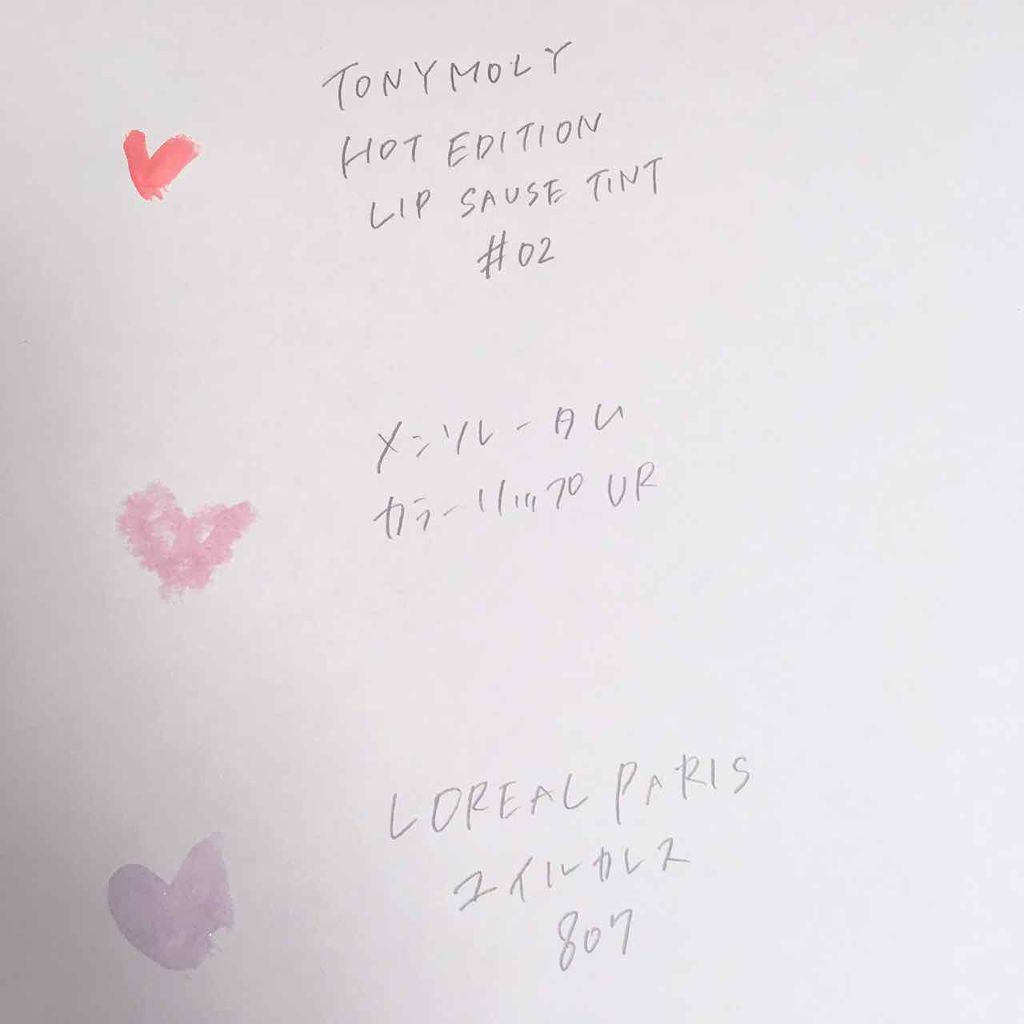 TONYMOLY
HOT EDITION
LIP SAUSE TINT
#02
メンソレータム
カラーリップ UR
LOREAL PARIS
ユイルカレス
807